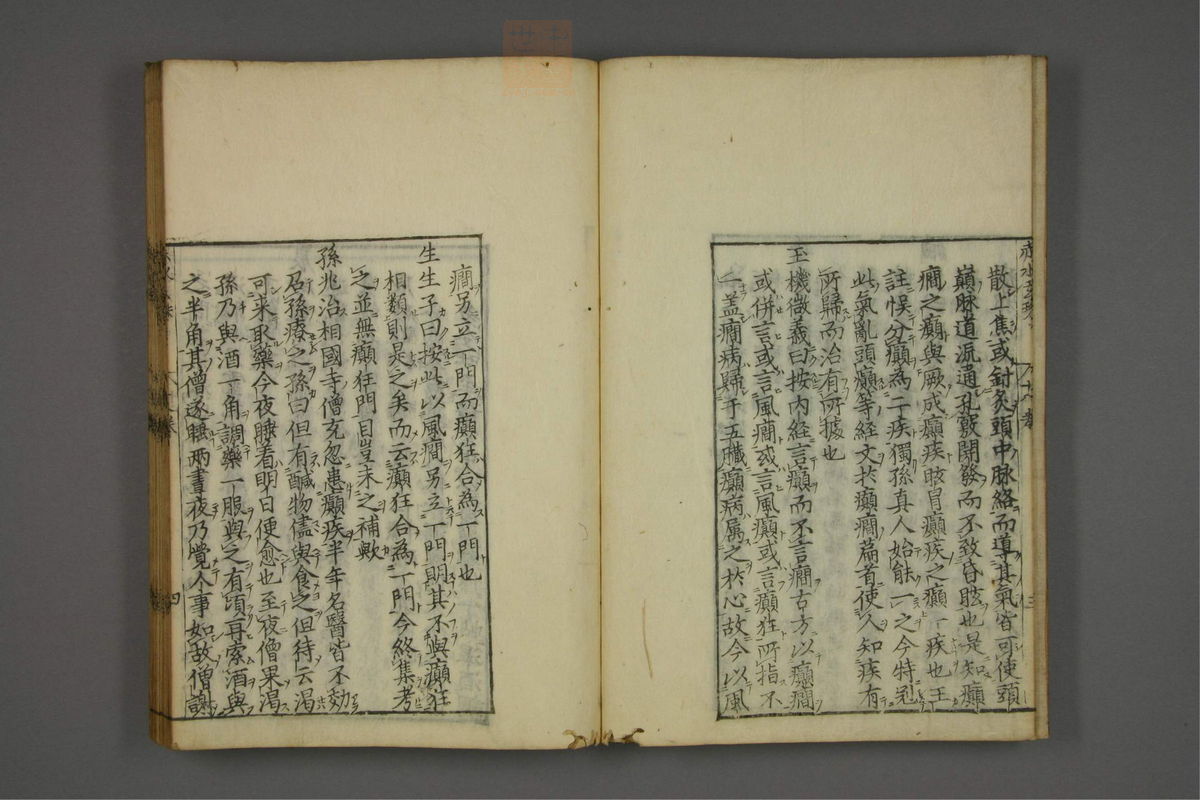 散上焦或針灸頭中脉絡而導其氣皆可使頭
巔脉道流通孔竅開發而不致昏眩也是知癲
癎之癲與厥成癲疾眩冒癲疾之癲一疾也王
註悞分癲為二疾獨孫真人始能一之今特冠
此氣亂頭癲等經文扵癲癎篇者使人知疾有
所歸而治有所據也
玉機微義曰按内経言癲而不言癎古方以癲癎
或併言或言風癎或言風癲或言癲狂所指不
一盖癎病歸于五臟癲病属之扵心故今以風
癎另立一門而癲狂合為一門也
生生子曰按此以風癎另立一門明其不與癲狂
相類則是之矣而云癲狂合為一門今終集考
之並無癲狂門目豈未之補歟
孫兆治相國寺僧充忽患癲疾半年名醫皆不効
召孫療之孫曰但有鹹物儘與食之但待云渴
可来取藥今夜睡着明日便愈也至夜僧果渴
孫乃與酒一角調藥一服與之有頃再索酒與
之半角其僧遂睡兩晝夜乃覺人事如故僧謝
四